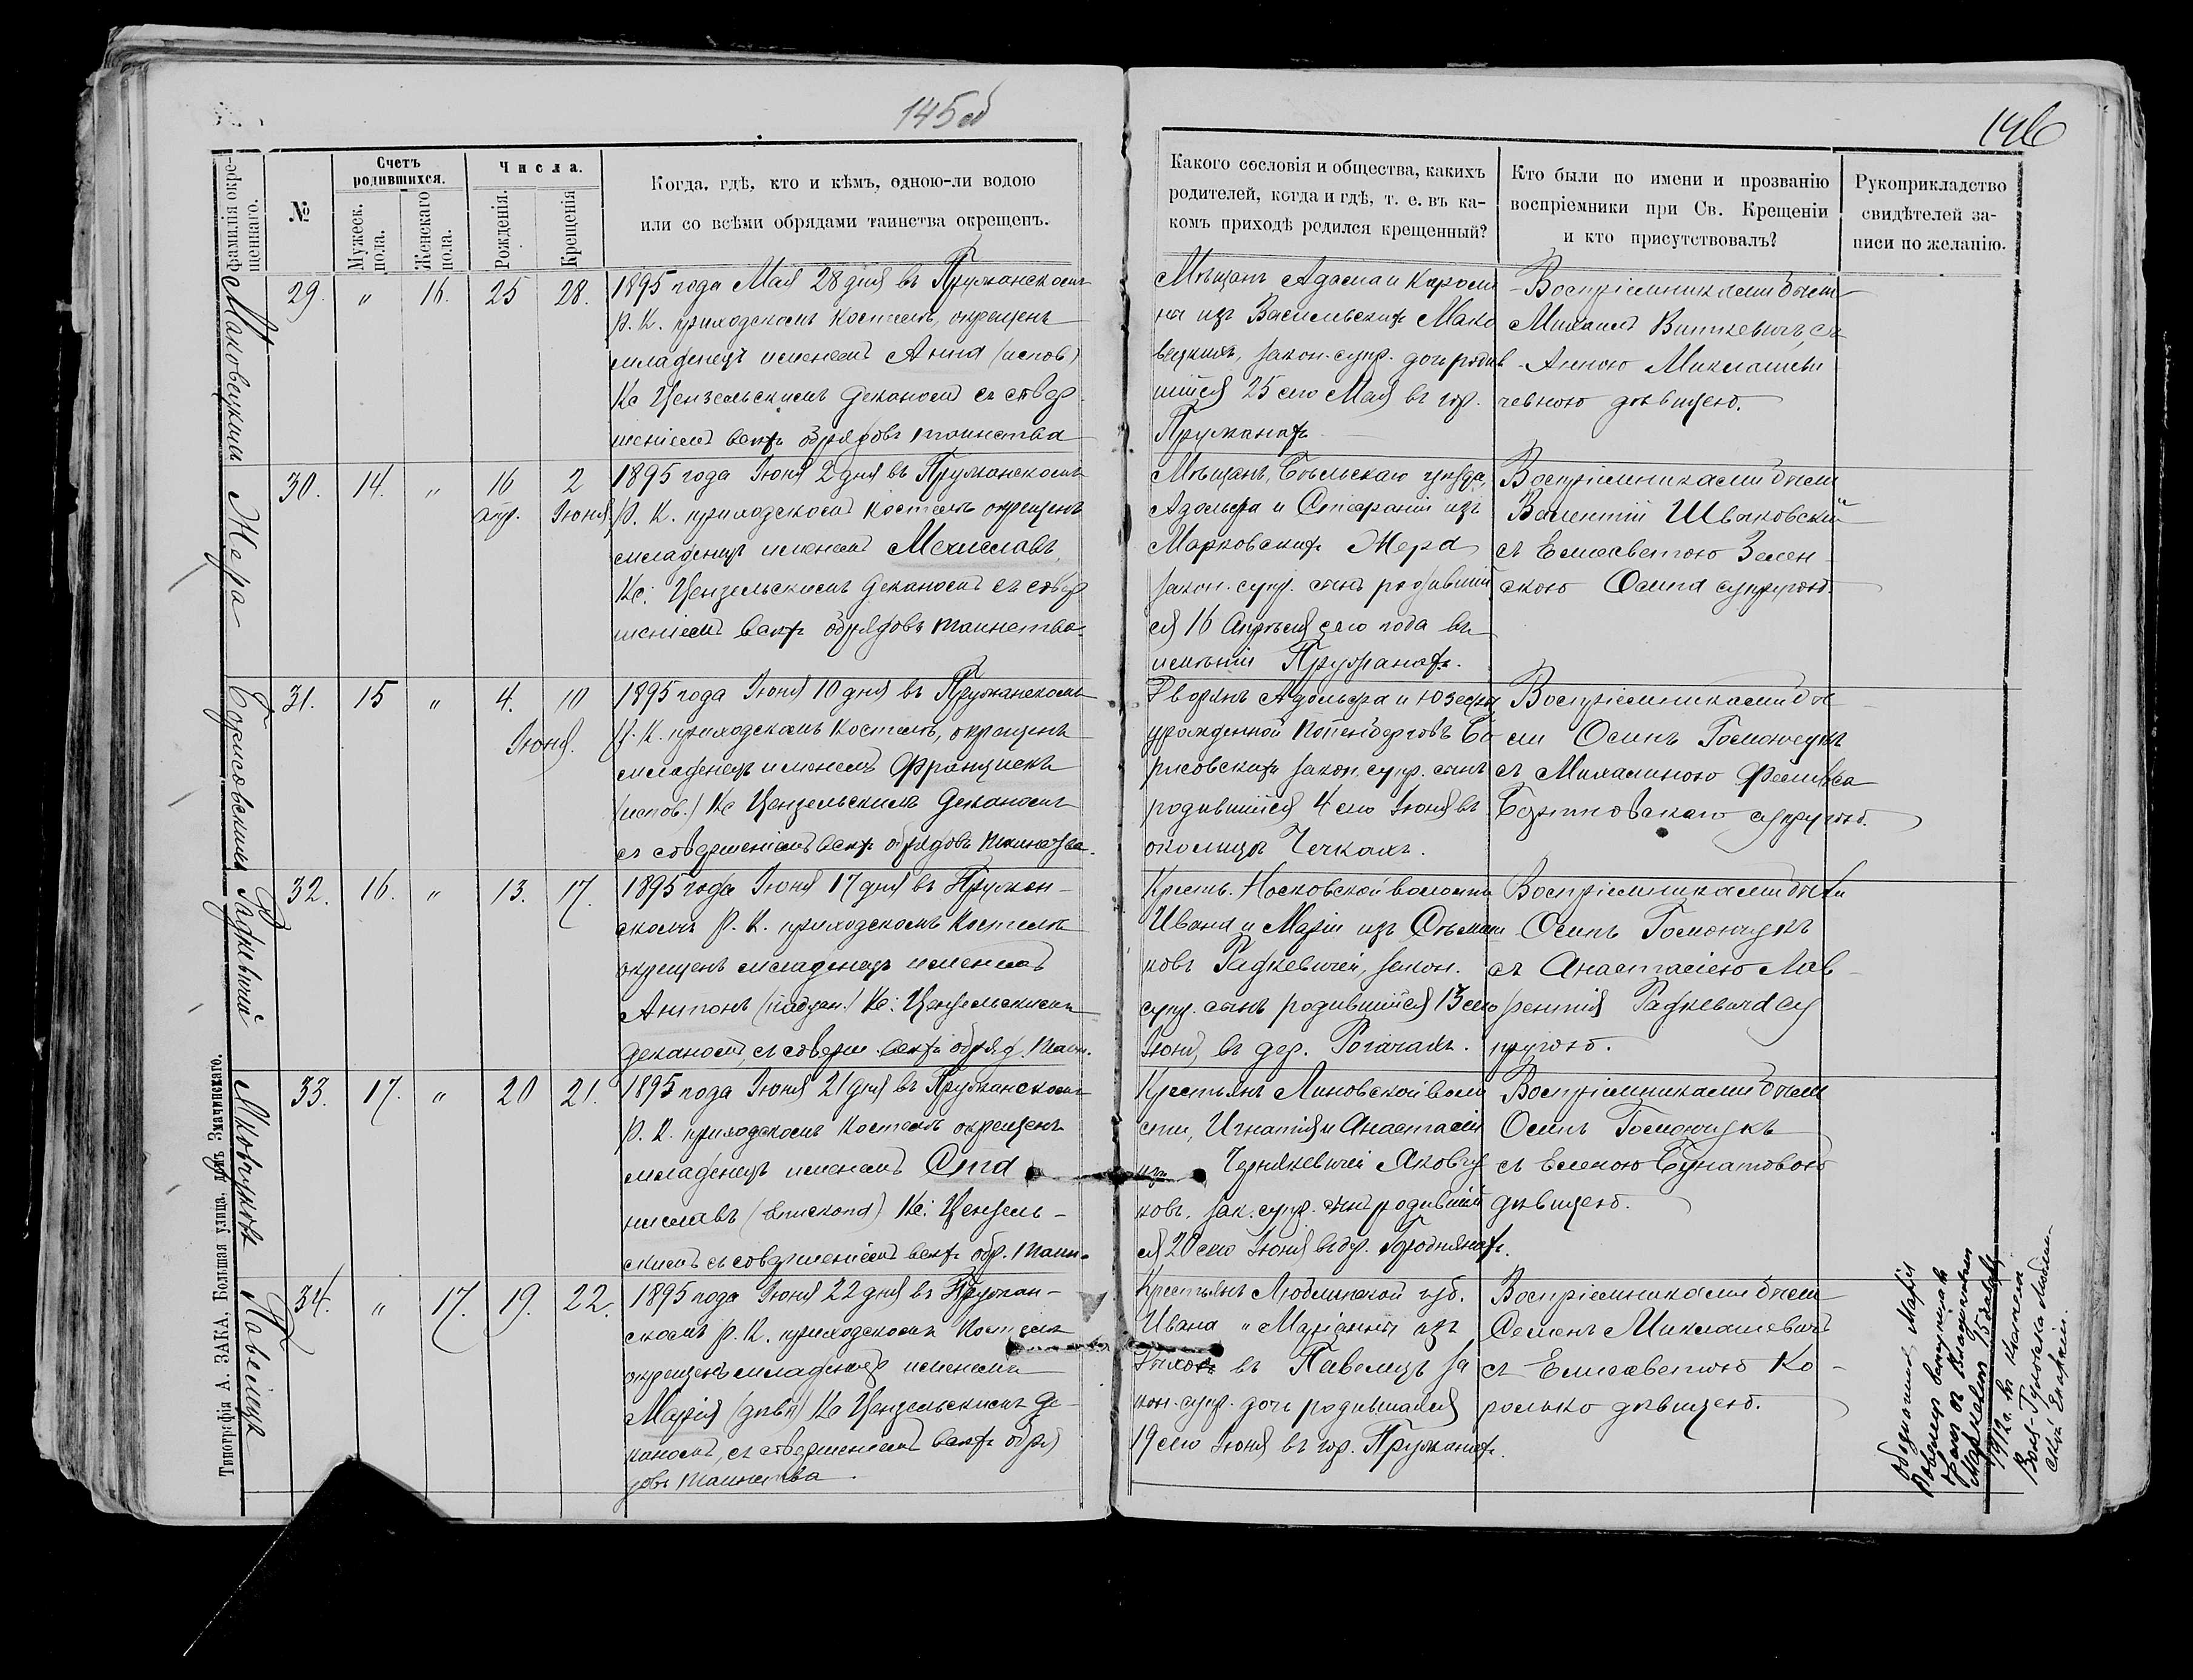 145 об
146
Фамилія окрещеннаго.
№
Счетъ родившихся.
Мужеск. пола.
Женскаго пола.
Числа.
Рожденія.
Крещенія
Когда, гдѣ, кто и кѣмъ, одною-ли водою
или со всѣми обрядами таинства окрещенъ.
Какого сословія и общества, какихъ
родителей, когда и гдѣ, т. е. въ ка-
комъ приходѣ родился крещенный?
Кто были по имени и прозванію
воспріемники при Св. Крещеніи
и кто присутствовалъ?
Рукоприкладство
свидѣтелей за-
писи по желанію.
Маковецкая
29. " 16. 25 28.
1895 года Мая 28 дня въ Пружанскомъ
Р. К. приходскомъ костелѣ, окрещенъ
младенецъ именемъ Анна (испов)
Кс Цензельскимъ деканомъ съ совер
шеніемъ всѣхъ обрядовъ таинства
Мѣщанъ Адама и Кароли
ны изъ Васильевскихъ Мако
вецкихъ, закон. супр. дочь родив
шійся 25 сего Мая въ гор.
Пружанахъ
Воспріемниками были
Михаилъ Виткевичъ, съ
Анною Миклашеви
чевною дѣвицею.
Жера
30. 14. " 16 апр. 2 Іюня
1895 года Іюня 2 дня въ Пружанскомъ
Р. К. приходскомъ костелѣ окрещенъ
младенецъ именемъ Мечиславъ,
Кс: Цензельскимъ деканомъ съ совер
шеніемъ всѣхъ обрядовъ таинства.
Мѣщанъ, Бѣльскаго уѣзда,
Адольфа и Стефаніи изъ
Марковскихъ Жера
закон. супр. сынъ родившій
ся 16 Апрѣля сего года въ
имѣніи Пружанахъ.
Воспріемниками были
Валентій Швыковскій
съ Елисаветою Зелен
скою Осипа супругою.
Борисовскій
31. 15 " 4. 10 Іюня.
1895 года Іюня 10 дня въ Пружанскомъ
Р. К. приходскомъ костелѣ, окрещенъ
младенецъ именемъ Францискъ
(испов.) Кс Цензельскимъ деканомъ
съ совершеніемъ всѣхъ обрядовъ таинства.
Дворянъ Адольфа и Юзефы,
урожденной Бо
рисовскихъ закон. супр. сынъ
родившійся 4 сего Іюня въ
околицѣ Чечкахъ.
Воспріемниками бы
ли Осипъ Гомончукъ
съ Михалиною Феликса
супругою.
Радкевичъ
32. 16. " 13. 17.
1895 года Іюня 17 дня въ Пружан-
скомъ Р. К. приходскомъ костелѣ
окрещенъ младенецъ именемъ
Антонъ (падуан.) Кс: Цензельскимъ
деканомъ, съ соверш. всѣхъ обряд. таин.
Крестн. Носковской волости
Ивана и Маріи изъ
ковъ Радкевичей, закон.
супр. сынъ родившійся 13 сего
Іюня, въ дер. Рогачахъ.
Воспріемниками были
Осипъ Гомончукъ
съ Анастасіею Лав
рентія Радкевича су
пругою.
Яковчукъ
33. 17. " 20 21.
1895 года Іюня 21 дня въ Пружанскомъ
Р. К. приходскомъ костелѣ окрещенъ
младенецъ именемъ Ста
ниславъ (епископа) Кс: Цензель-
скимъ съ совершеніемъ всѣхъ обр. таин.
Крестьянъ Линовской воло
сти, Игнатія и Анастасіи
изъ Чернякевичей Яковчу
ковъ. зак. супр. сынъ родившій
ся 20 сего Іюня въ дер. Городнянахъ.
Воспріемниками были
Осипъ Гомончукъ
съ Еленою
дѣвицею.
Павелецъ
34. " 17. 19. 22.
1895 года Іюня 22 дня въ Пружан-
скомъ Р. К. приходскомъ костелѣ
окрещенъ младенецъ именемъ
Марія (дѣва) Кс Цензельскимъ де-
каномъ, съ совершеніемъ всѣхъ обря
довъ таинства.
Крестьянъ Люблинской губ.
Ивана и Маріанны изъ
въ Павелецъ за
кон. супр. дочь родившаяся
19 сего Іюня въ гор. Пружанахъ.
Воспріемниками были
Семенъ Миклашевичъ
съ Елисаветою Ко-
ролько дѣвицею.
Марія
Павелецъ вступила въ
бракъ съ
1912 г. въ
Типографія А. ЗАКА, Большая улица, домъ Змачинскаго.